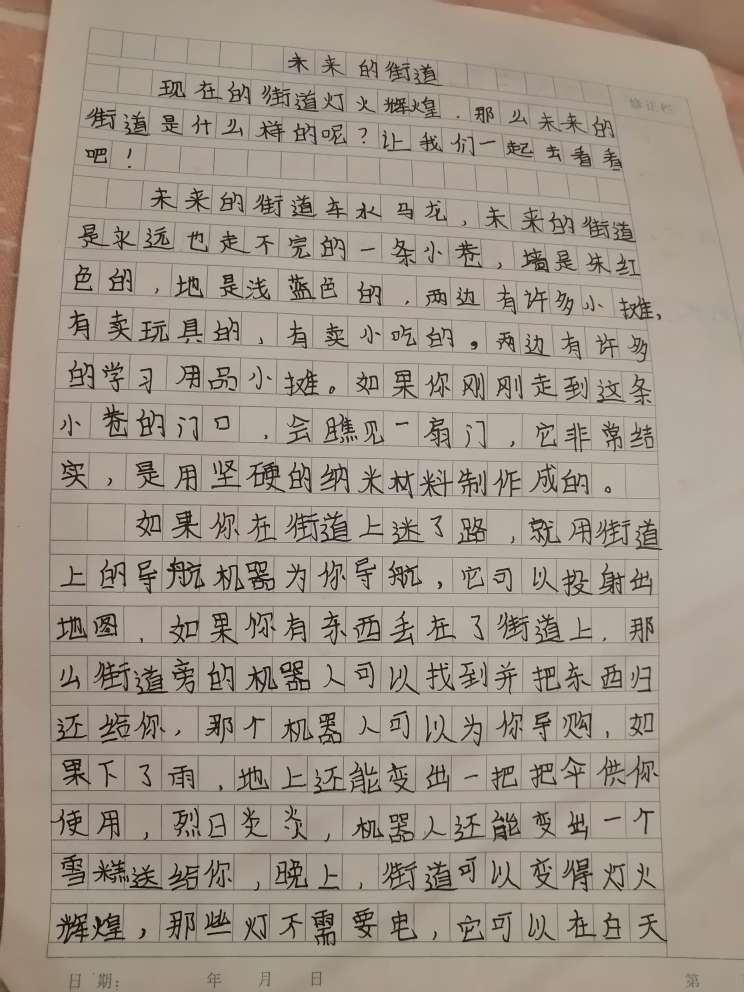 未来的街道
修正栏
现在的街道灯火辉煌，那么未来的
街道是什么样的呢？让我们一起去看看
吧！
未来的街道车水马龙，未来的街道
是永远也走不完的一条小巷，墙是朱红
色的，地是浅蓝色的，两边有许多小摊，
有卖玩具的，有卖小吃的。两边有许多
的学习用品小摊。如果你刚刚走到这条
小巷的门口，会瞧见一扇门，它非常结
实，是用坚硬的纳米材料制作成的。
如果你在街道上迷了路，就用街道
上的导航机器为你导航，它可以投射出
地图，如果你有东西丢在了街道上，那
么街道旁的机器人可以找到并把东西归
还给你，那个机器人可以为你导购，如
果下了雨，地上还能变出一把把伞供你
使用，烈日炎炎，机器人还能变出一个
雪糕送给你，晚上，街道可以变得灯火
辉煌，那些灯不需要电，它可以在白天
日期： 年 月 日 第